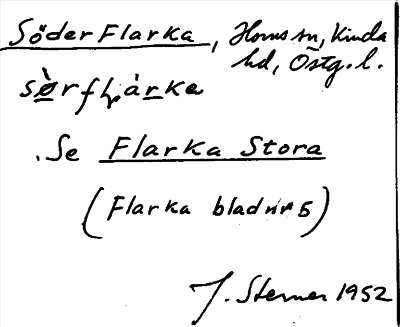 Söder Flarka, Horns sn, Kinda
hd, Östg. l.
Se Flarka Stora
(Flarka blad nr 5)
J. Sterner 1952